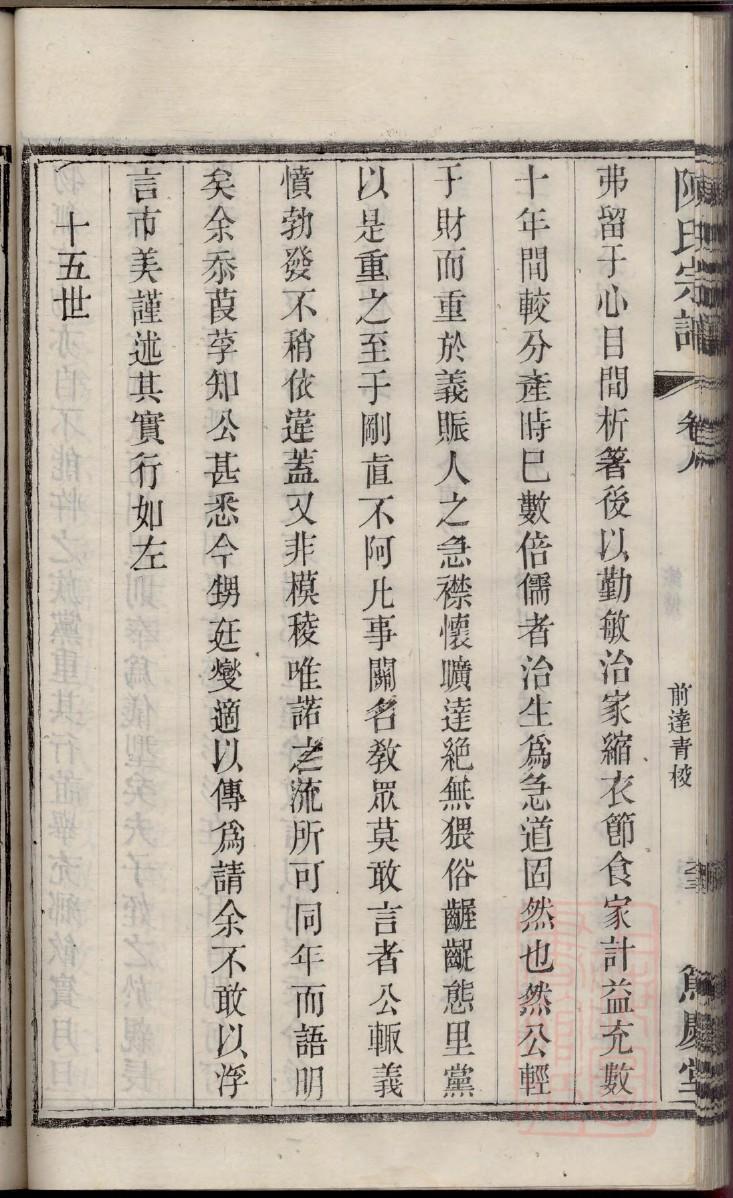 陳氏宗譜
卷八
前達青梭
篤慶堂
弗留于心目間析箸後以勤敏治家縮衣節食家計益充數
十年間較分產時巳數倍儒者治生爲急道固然也然公輕
于財而重於義賑人之急襟懷曠達絕無猥俗齷齪態里黨
以是重之至于剛直不阿凡事關名教眾莫敢言者公輙義
憤勃發不稍依違蓋又非模稜唯諾之流所可同年而語明
矣余忝葭莩知公甚悉今甥廷燮適以傳爲請余不敢以浮
言市美謹述其實行如左
十五世